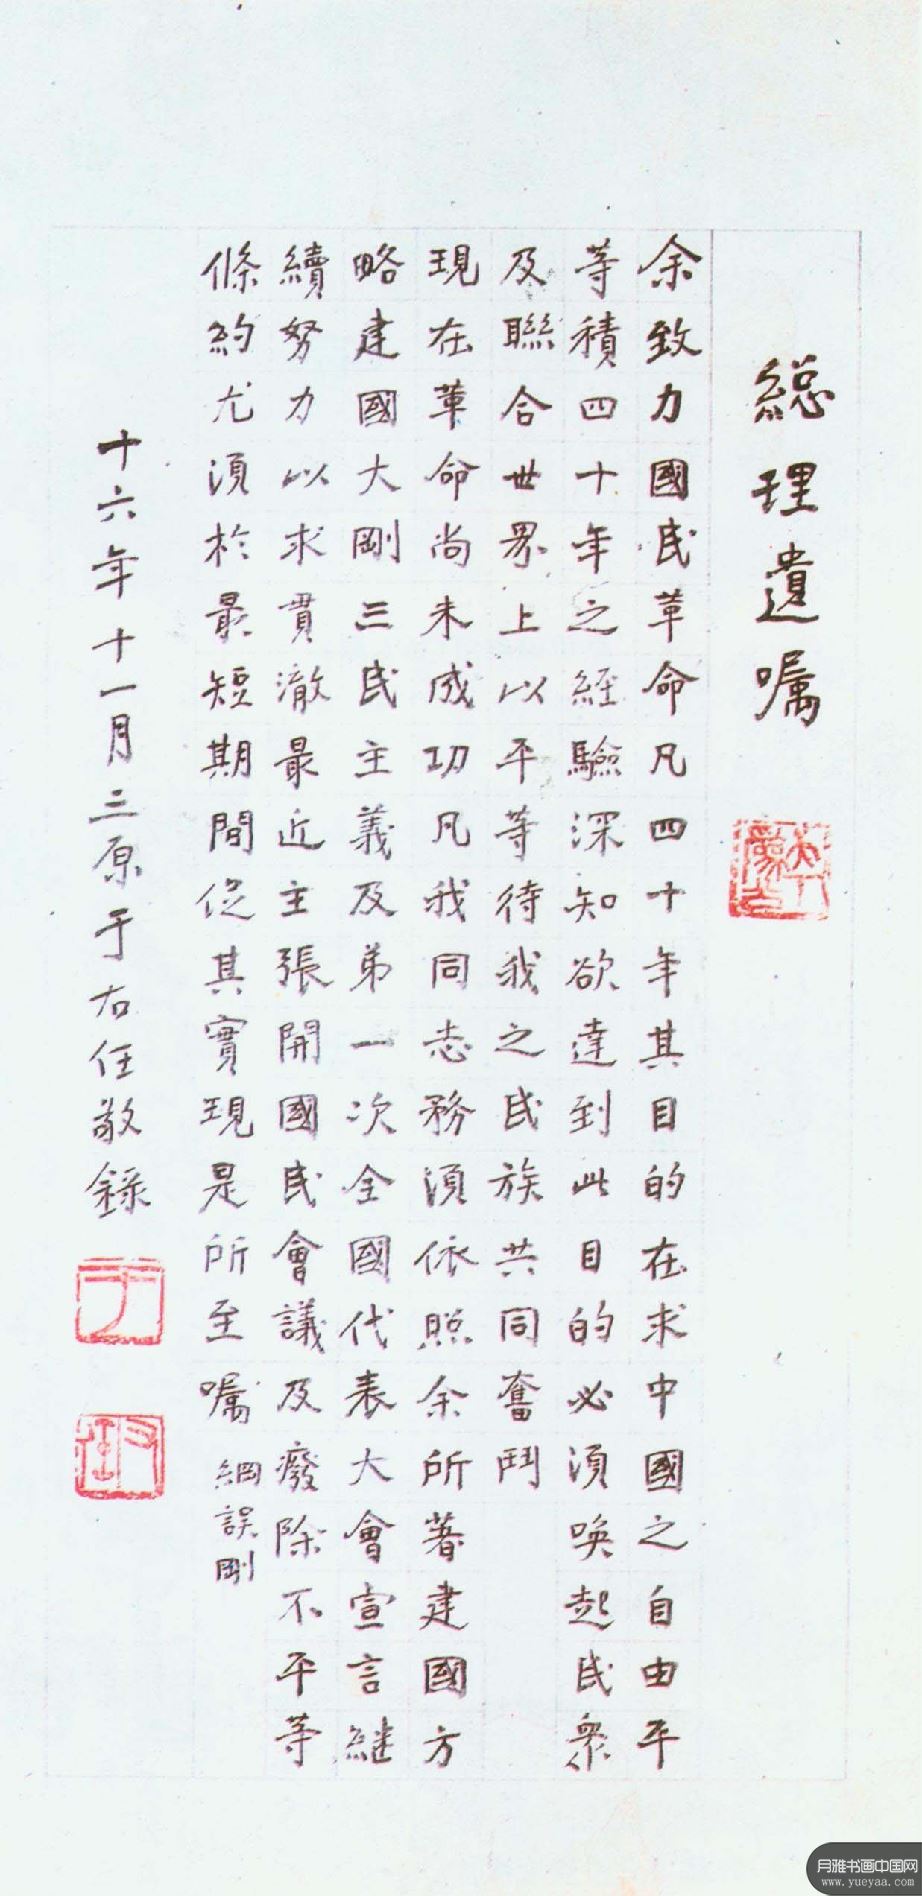 総理遺嘱
余致力國民革命凡四十年其目的在求中國之自由平
等積四十年之経驗深知欲達到此目的必須喚起民衆
及聯合世界上以平等待我之民族共同奮鬥
現在革命尚未成功凡我同志務須依照余所著建國方
略建國大剛三民主義及第一次全國代表大會宣言継
續努力以求貫澈最近主張開國民會議及廢除不平等
條約尤須於最短期間促其實現是所至嘱
綱誤剛
十六年十一月三原于右任敬錄
月雅书画中国网
www.yueyaa.com